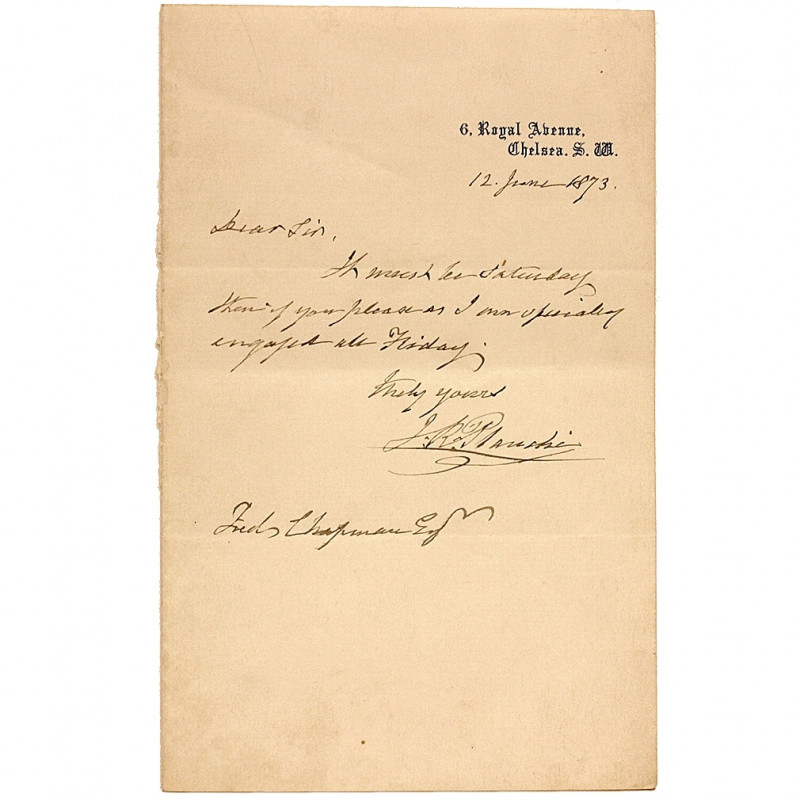 6, Royal Avenue,
Chelsea. S. W.
12. June 1873.
Dear Sir,
It must be Saturday
then if you please as I am specially
engaged all Friday.
Truly yours
J. R. Planché
Fredk Chapman Esqr